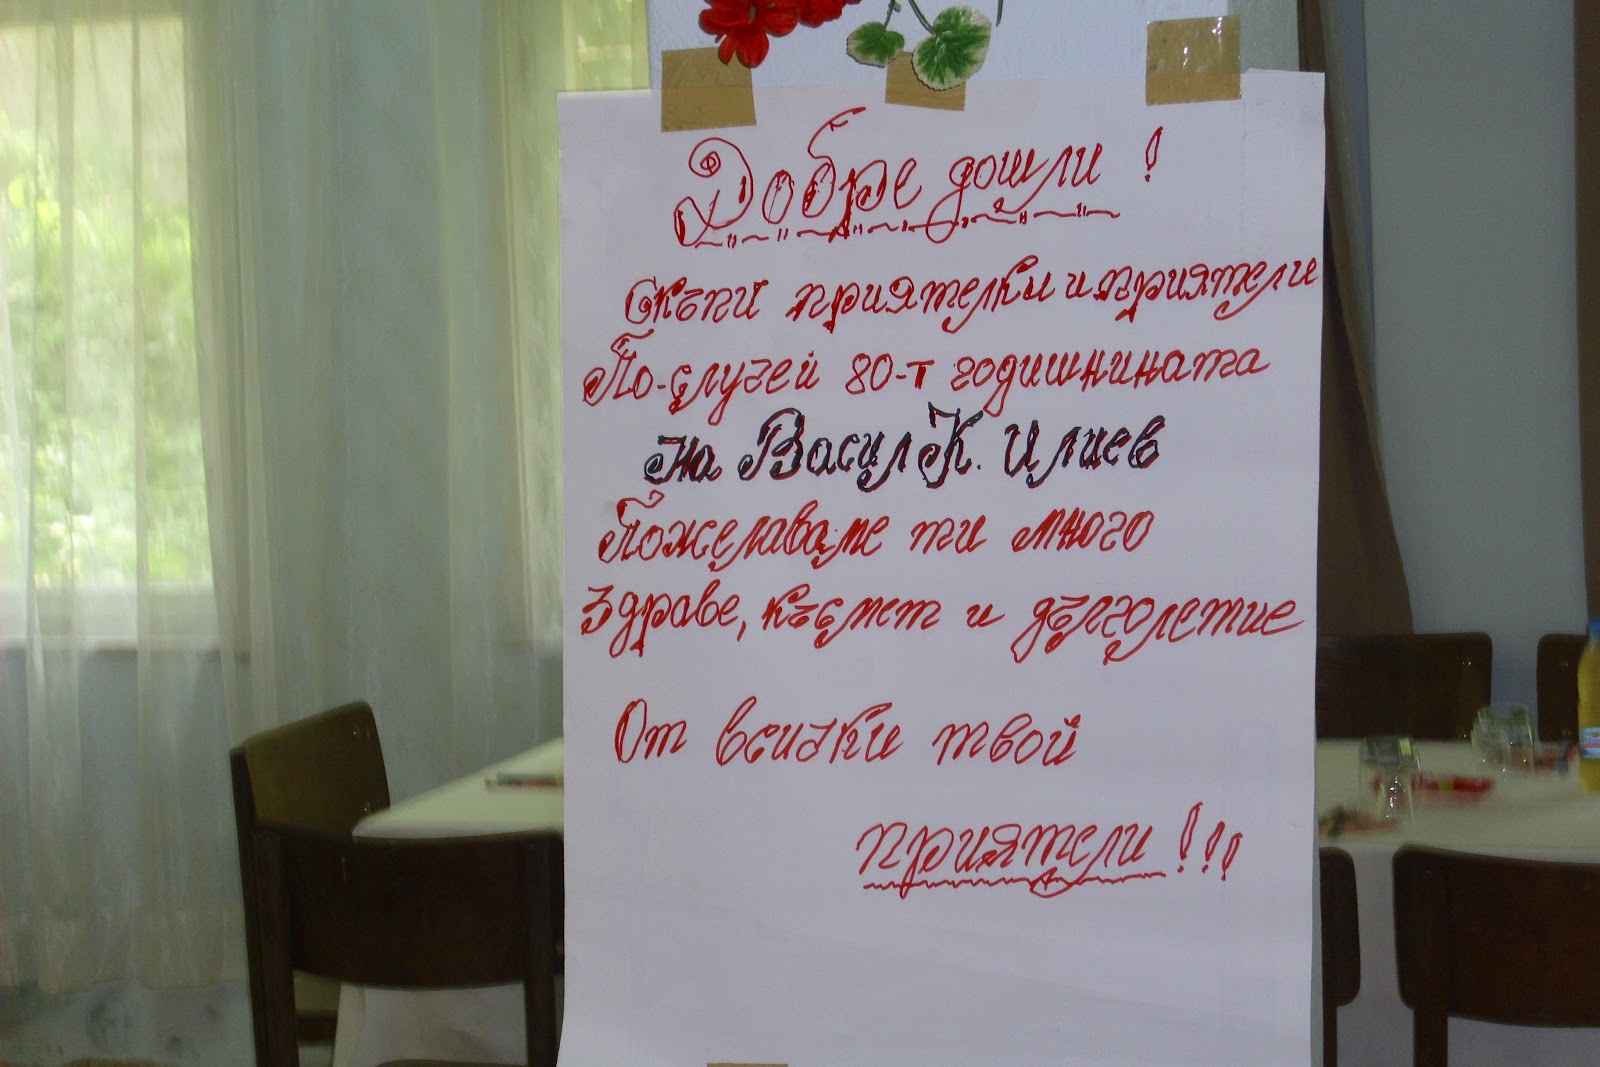 Добре дошли !
Скъпи приятелки и приятели
По-случей 80-т годишнината
на Васил К. Илиев
Пожелаваме ти много
Здраве, късмет и дълголетие
От всички твой
приятели !!!